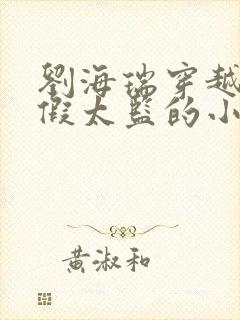 劉海瑞穿越
假太監的小
黃淑和